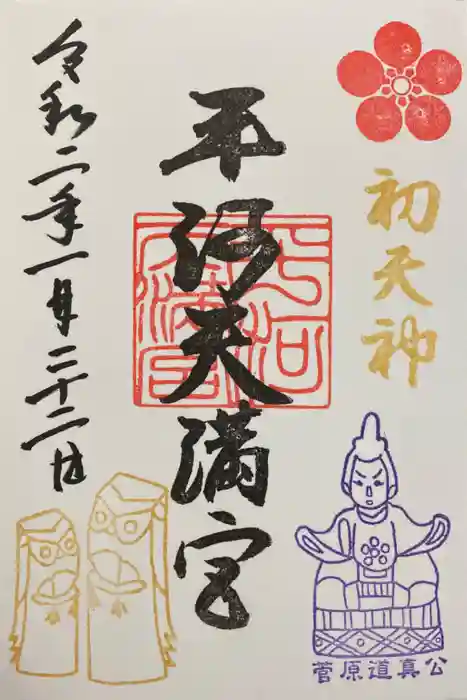 初天神
平河天満宮
平河天満宮
令和二年一月二十二日
菅原道真公